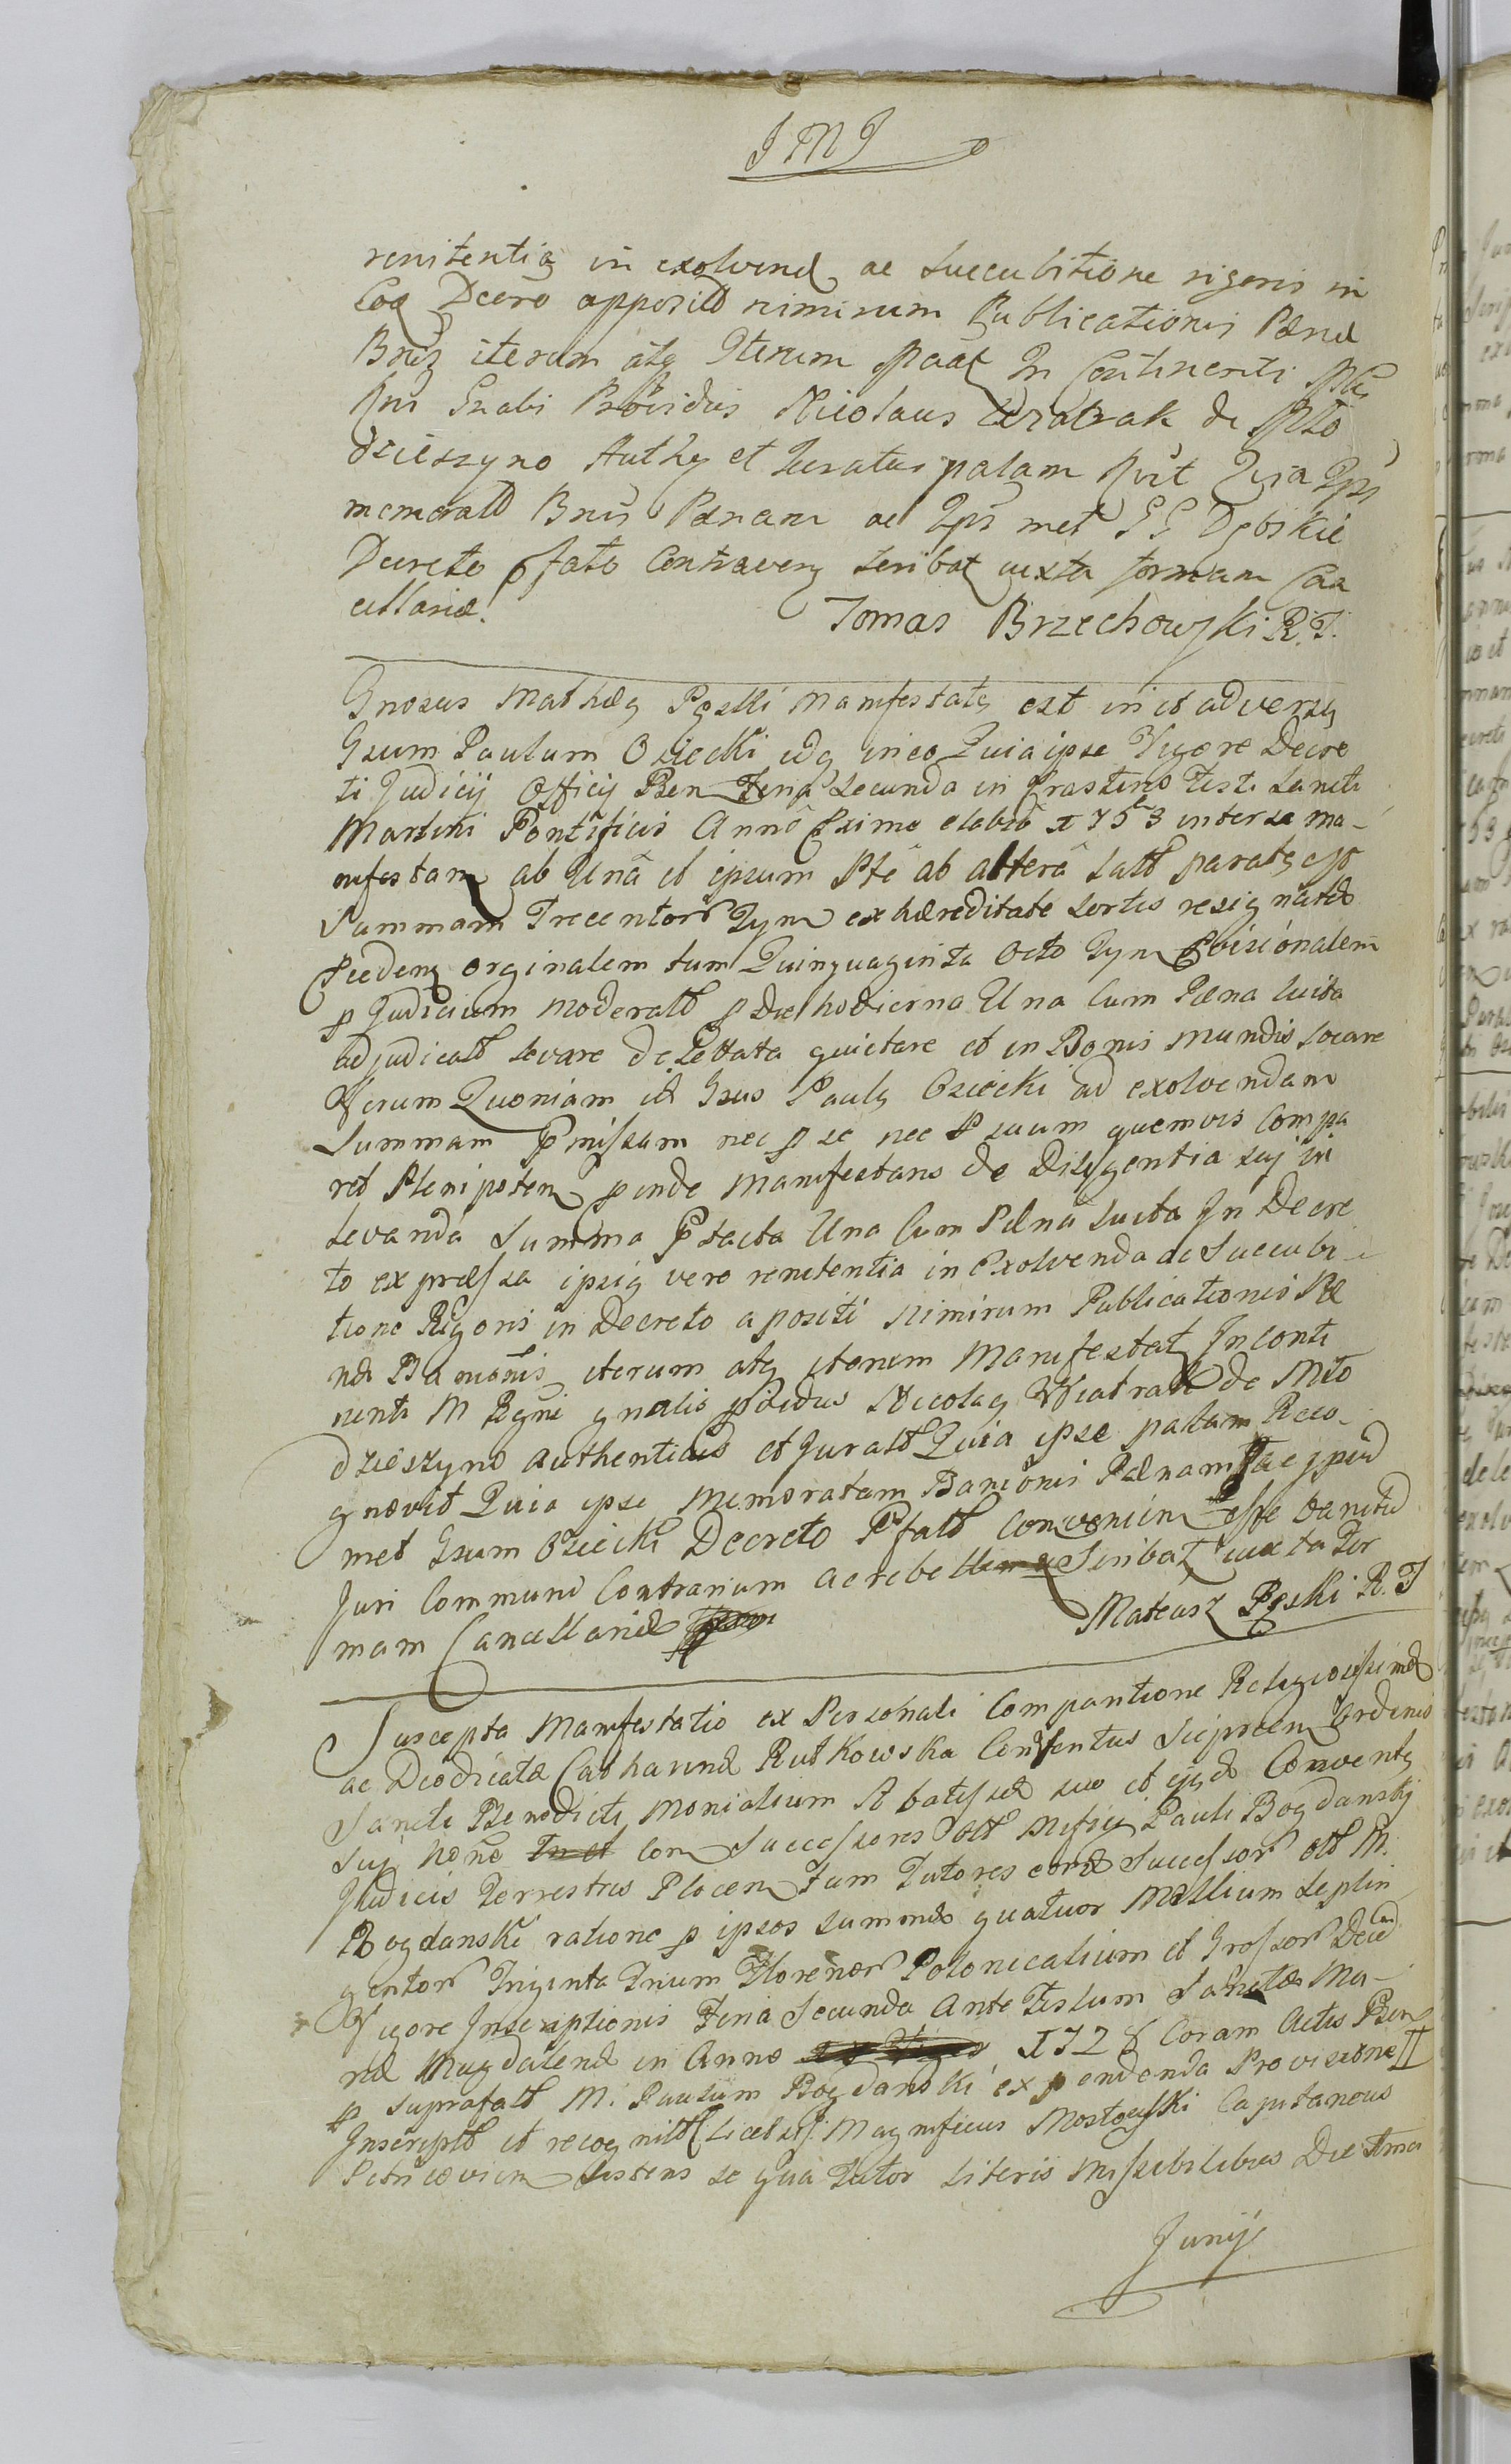 J M J
renitentia in exolvend ac succubitione rigoris in
Eoq Dcero apposito nimirum Publicationis Pænæ
Bnis iterum atq Iterum
Rni Gnalis Providus Nicolaus Wiatrak de Mto
dzieszyno Authg et Juratus palam Rvit Quia Ips
memorato Bnis Pænam ac Ips met GG Dębskie
Decreto pfato Contraveng scribat iuxta formam Can
cellariæ. Tomas Brzechowski R.T.
Gnosus Mathæg Pęski Manifestatg est in et adversg
Gsum Paulum Osiecki idq in eo Quia ipse Vigore Decre
ti Judicij Officij Ben Feria Secunda in Crastino Festi Sancti
Martini Pontificis Anno Pximo elabso 1753 inter se ma-
nifestam ab Una et ipsum Pte ab altera latt paratg
Summam Trecentor Tyn ex hæreditate sortis resignatæ
Piedem orginalem tum Quinquaginta Octo Tyn Pvisionalem
p Judicium moderatt p Die hodierna Una Cum Pæna luita
adjudicatt levare de Lettata quietare et in Bonis mundis locare
Verum Quoniam id Gsus Paulg Osiecki ad exolvendam
Summam Pmissam nec p se nec P suum quemvis Compa
ret Plenipotem pinde Manifestans de Diligentia sui in
levanda Summa Ptacta Una Cum Pæna luita In Decre
to expræssa ipsig vero renitentia in Exolvenda ac Succubi-
tione Rigoris in Decreto apositi Nimirum Publicationis Pæ
næ Banionis iterum atq iterum Manifestat Inconti
nenti M Regni gnalis pvidus Nicolag Wiatrak de Mto
dzieszyno Authenticus et Juratt Quia ipse palam Reco-
gnovit Quia ipse Memoratam Banionis Pænam
met Gsum Osiecki Decreto Pfatt esse
Juri Communi Contrarium ac rebellem Scribat iuxta For
mam Cancellariæ Mateusz Pęski R.T
Suscepta Manifestatio ex Personali Comparitione Religiosissimæ
ac Deodicatæ Catharinæ Rutkowska Conventus Sieprcen Ordinis
Sancti Benedicti Monialium Abatissæ suo et ejgd Conventg
Sui noñe Con Successores olt Mfici Pauli Bogdanskj
Judicis Terrestris Plocen tum Tutores eord Successor olt M.
Bogdanski ratione p ipsos summæ quatuor Millium Septin
gentor Triginta Trium Florenor Polonicalium et Grossor Decem
Vigore Inscriptionis Feria Secunda Ante Festum Sanctæ Ma-
riæ Magdalenæ in Anno 172 Coram Actis Ben
p suprafatt M. Paulum Bogdanski expendenda Provisione
Inscriptt et recognitt Licet Magnificus Mostowski Capitaneus
Petricovien sistens se qua Tutor Literis Missibilibus Die
Junij